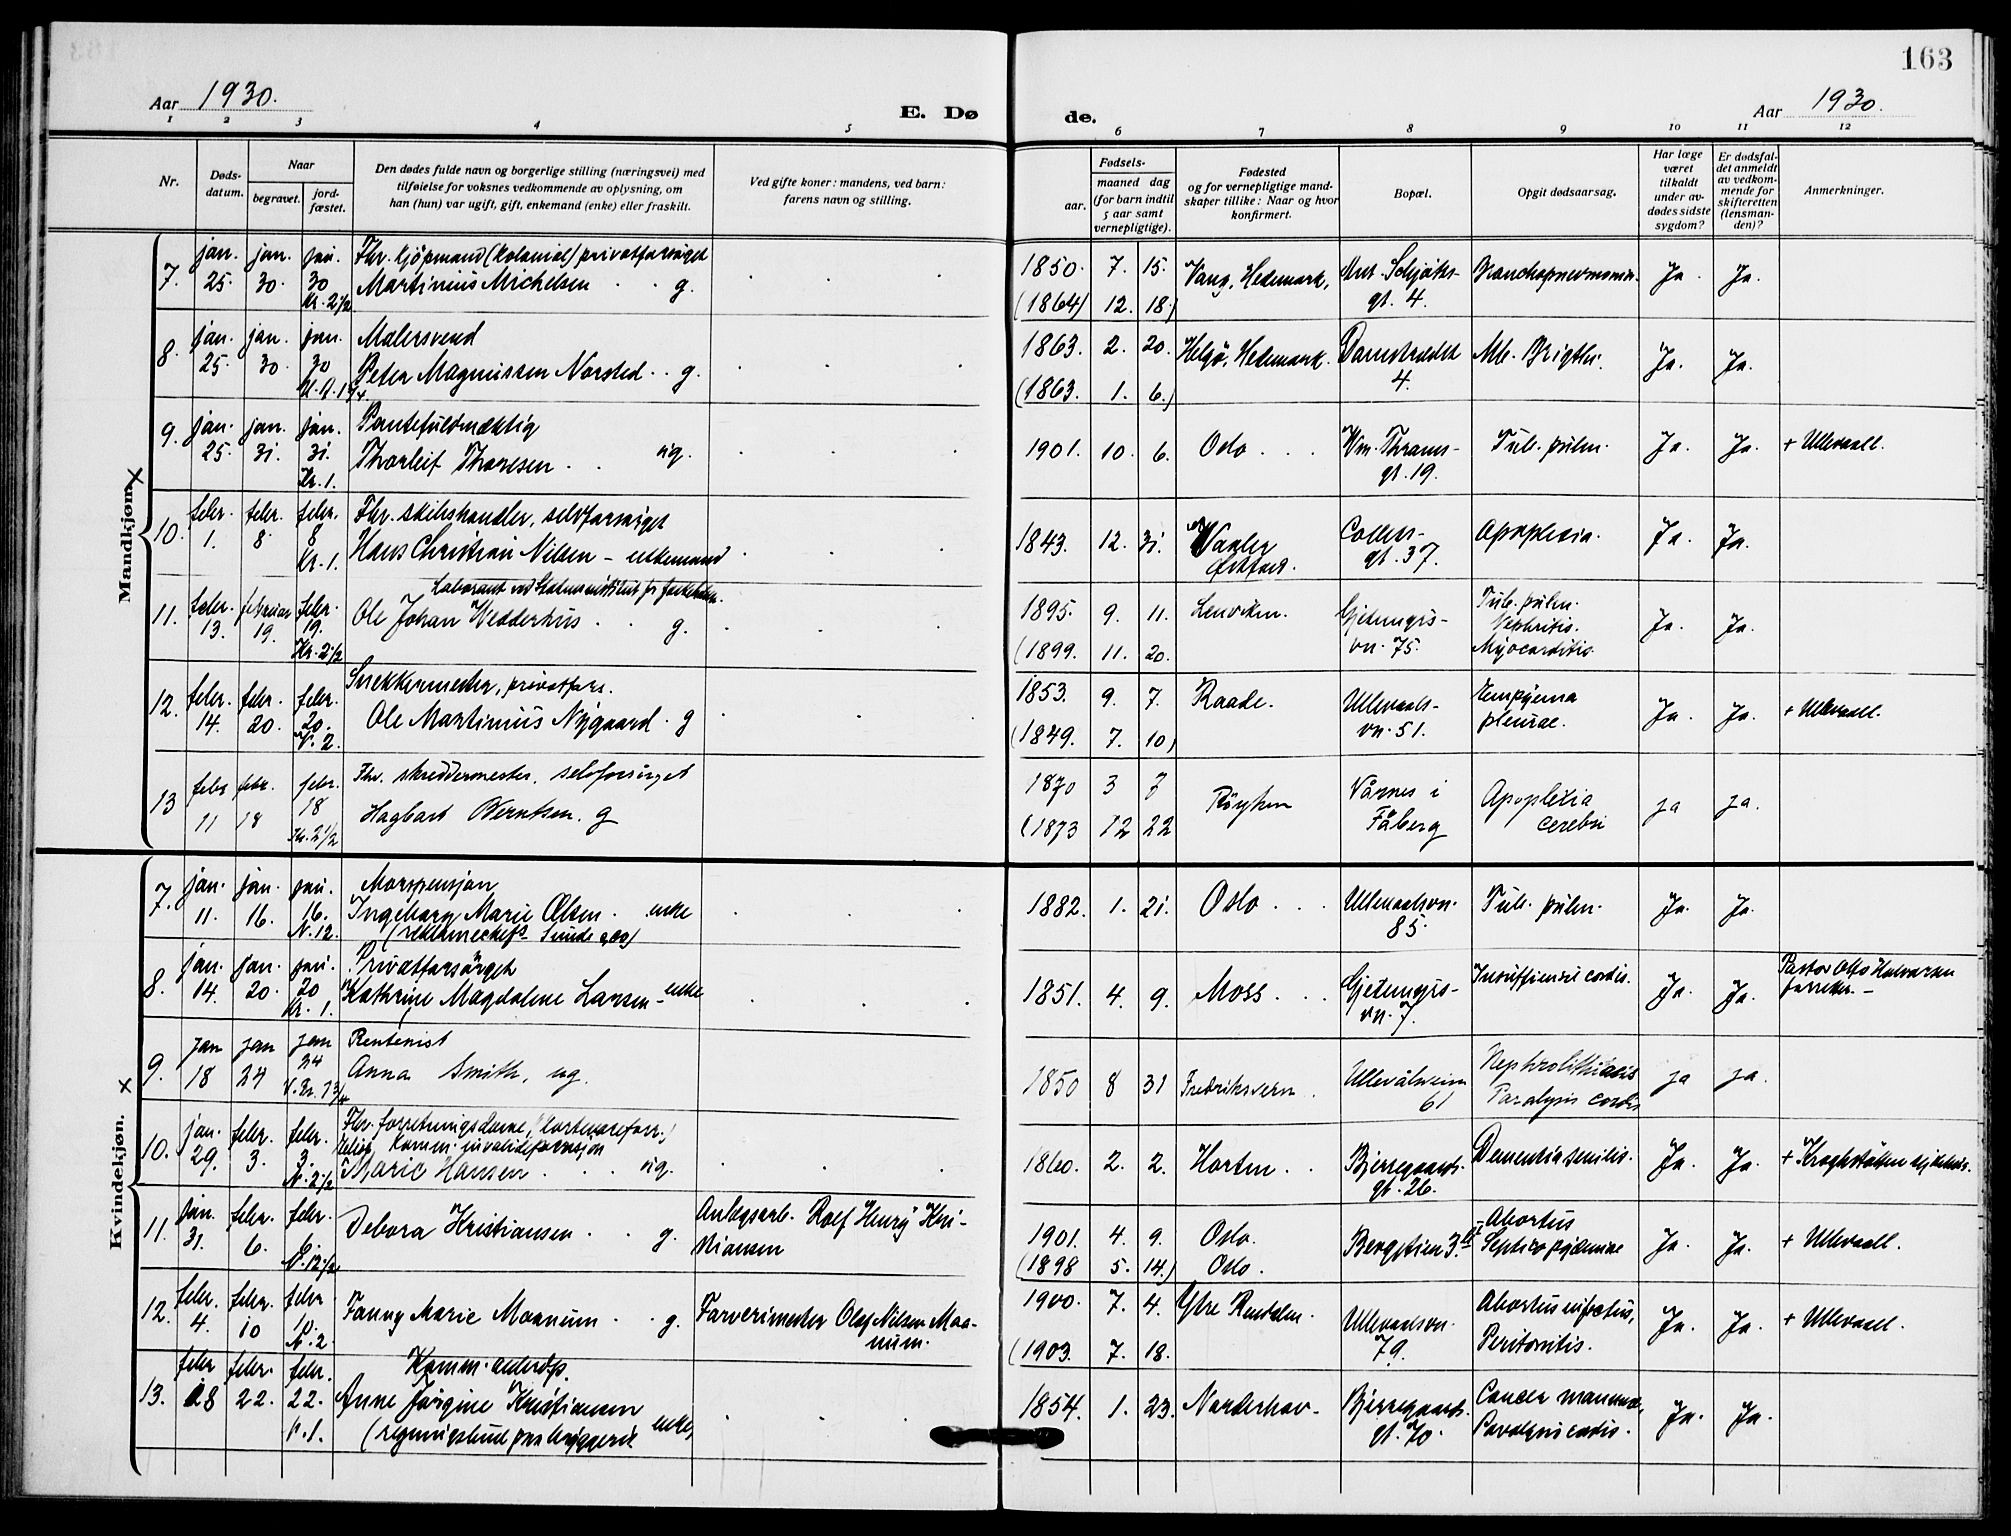 163
Aar 1930.
E. Dø de.
Aar 1930.
1 2 3 4 5 6 7 8 9 10 11 12
Nr.
Døds-
datum.
Naar
begravet.
jord-
fæstet.
Den dødes fulde navn og borgerlige stilling (næringsvei) med
tilføielse for voksnes vedkommende av oplysning, om
han (hun) var ugift, gift, enkemand (enke) eller fraskilt.
Ved gifte koner: mandens, ved barn:
farens navn og stilling.
Fødsels-
aar.
maaned dag
(for barn indtil
5 aar samt
vernepligtige).
Fødested
og for vernepligtige mand-
skaper tillike: Naar og hvor
konfirmert.
Bopæl.
Opgit dødsaarsag.
Har læge
været
tilkaldt
under av-
dødes sidste
sygdom?
Er dødsfal-
det anmeldt
av vedkom-
mende for
skifteretten
(lensman-
den)?
Anmerkninger.
Mandkjøn. x
7. jan. 25. jan. 30. jan. 30 Kr. 2 1/2
Fhv. kjøpmand (kolonial) privatforsørget
Martinius Michelsen . . g.
1850. 7. 15. Vang, Hedemark. Schjøtts-
gt. 4. Ja. Ja.
(1864) 12. 18.)
8. jan. 25. jan. 30. jan. 30
Malersvend
Peter Magnussen Norsted . . g.
1863. 2. 20. Helgø, Hedemark. Damstrædet
4. Mb. Brigthi. Ja. Ja.
(1863. 1. 6.)
9. jan. 25. jan. 31. jan. 31. Kr. 1.
Pantefuldmæktig
Thorleif Thoresen . . ug.
1901. 10. 6. Oslo . . . Wm. Thranes-
gt. 19. Tub. pulm. Ja. Ja. + Ullevaal.
10. febr. 1. febr. 8. febr. 8 Kr. 1.
Fhv. skibshandler, selvforsørget
Hans Christian Nilsen - enkemand
1843. 12. 31. Vaaler
Østfold. Colletts-
gt. 37. Apoplexia. Ja. Ja.
11. febr. 13. februar 19. febr. 19. Kr. 2 1/2
Laborant ved Statens institut for folkehelsen.
Ole Johan Wedderhus . . g.
1895. 9. 11. Lenviken. Gjetemyrs-
vn. 75. Tub. pulm.
Nephritis.
Myocarditis. Ja. Ja.
(1899. 11. 20.
12. febr. 14. febr. 20. febr. 20. V. 2.
Snekkermester, privatfors.
Ole Martinius Nygaard . g
1853. 9. 7. Raade. Ullevaals-
vn. 51. Empyema
pleurae. Ja. Ja. + Ullevaal.
(1849. 7. 10)
13 febr 11 febr. 18 febr. 18 Kr. 2 1/2
Fhv. skreddermester, selvforsørget
Hagbart Berntsen. g
1870 3 7 Røyken Vårnes i
Fåberg Apoplexia
cerebri ja ja.
(1873 12 22
Kvindekjøn. x
7. jan. 11. jan. 16. jan. 16. N. 12.
Morspensjon
Ingeborg Marie Olsen . enke
1882. 1. 21. Oslo . . . Ullevaalsvn.
85. Tub. pulm. Ja. Ja.
8. jan. 14. jan. 20. jan. 20 Kr. 1.
Privatforsørget
Kathrine Magdalene Larsen - enke
1851. 4. 9. Moss . . . Gjetemyrs-
vn. 7. Insufficiensi cordis. Ja. Ja. Pastor Halvorsen
forretter. -
9. jan 18 jan 24 jan 24
Rentenist
Anna Smith, ug.
1850 8 31 Fredriksvern . Ullevålsveien
61 Nephrolithiasis
Paralysis cordis ja ja.
10. jan. 29. febr. 3. febr. 3. N. 2 1/2
Fhv. forretningsdame,
Komm. invalidepensjon
Marie Hansen . . . ug.
1860. 2. 2. Horten . . Bjerregaards-
gt. 26. Dementia senilis. Ja. Ja. + Kroghstøtten sykehus.
11. jan. 31. febr. 6. febr. 6. N. 12 1/2
Debora Kristiansen . . g.
Anlegsarb. Rolf Henry Kri-
stiansen
1901. 4. 9. Oslo. Bergstien 3. Abortus
Septicopyæmiae Ja. Ja. + Ullevaal.
(1898 5. 14.) Oslo.
12. febr. 4. febr. 10 febr. 10. N. 2
Fanny Marie Moanum . . g.
Farverimester Olaf Nilsen Moa-
num.
1900. 7. 4. Ytre Rendalen. Ullevaalsvn.
79. Abortus infectus,
Peritonitis. Ja. Ja. + Ullevaal.
(1903. 7. 18.
13. febr 18 febr. 22. febr. 22. V. 1.
Komm. alderdp.
Anne Jørgine Kristiansen enke,
1854. 1. 23. Norderhov. Bjerregaards-
gt. 70. Cancer mammae,
Paralysis cordis. Ja. Ja.